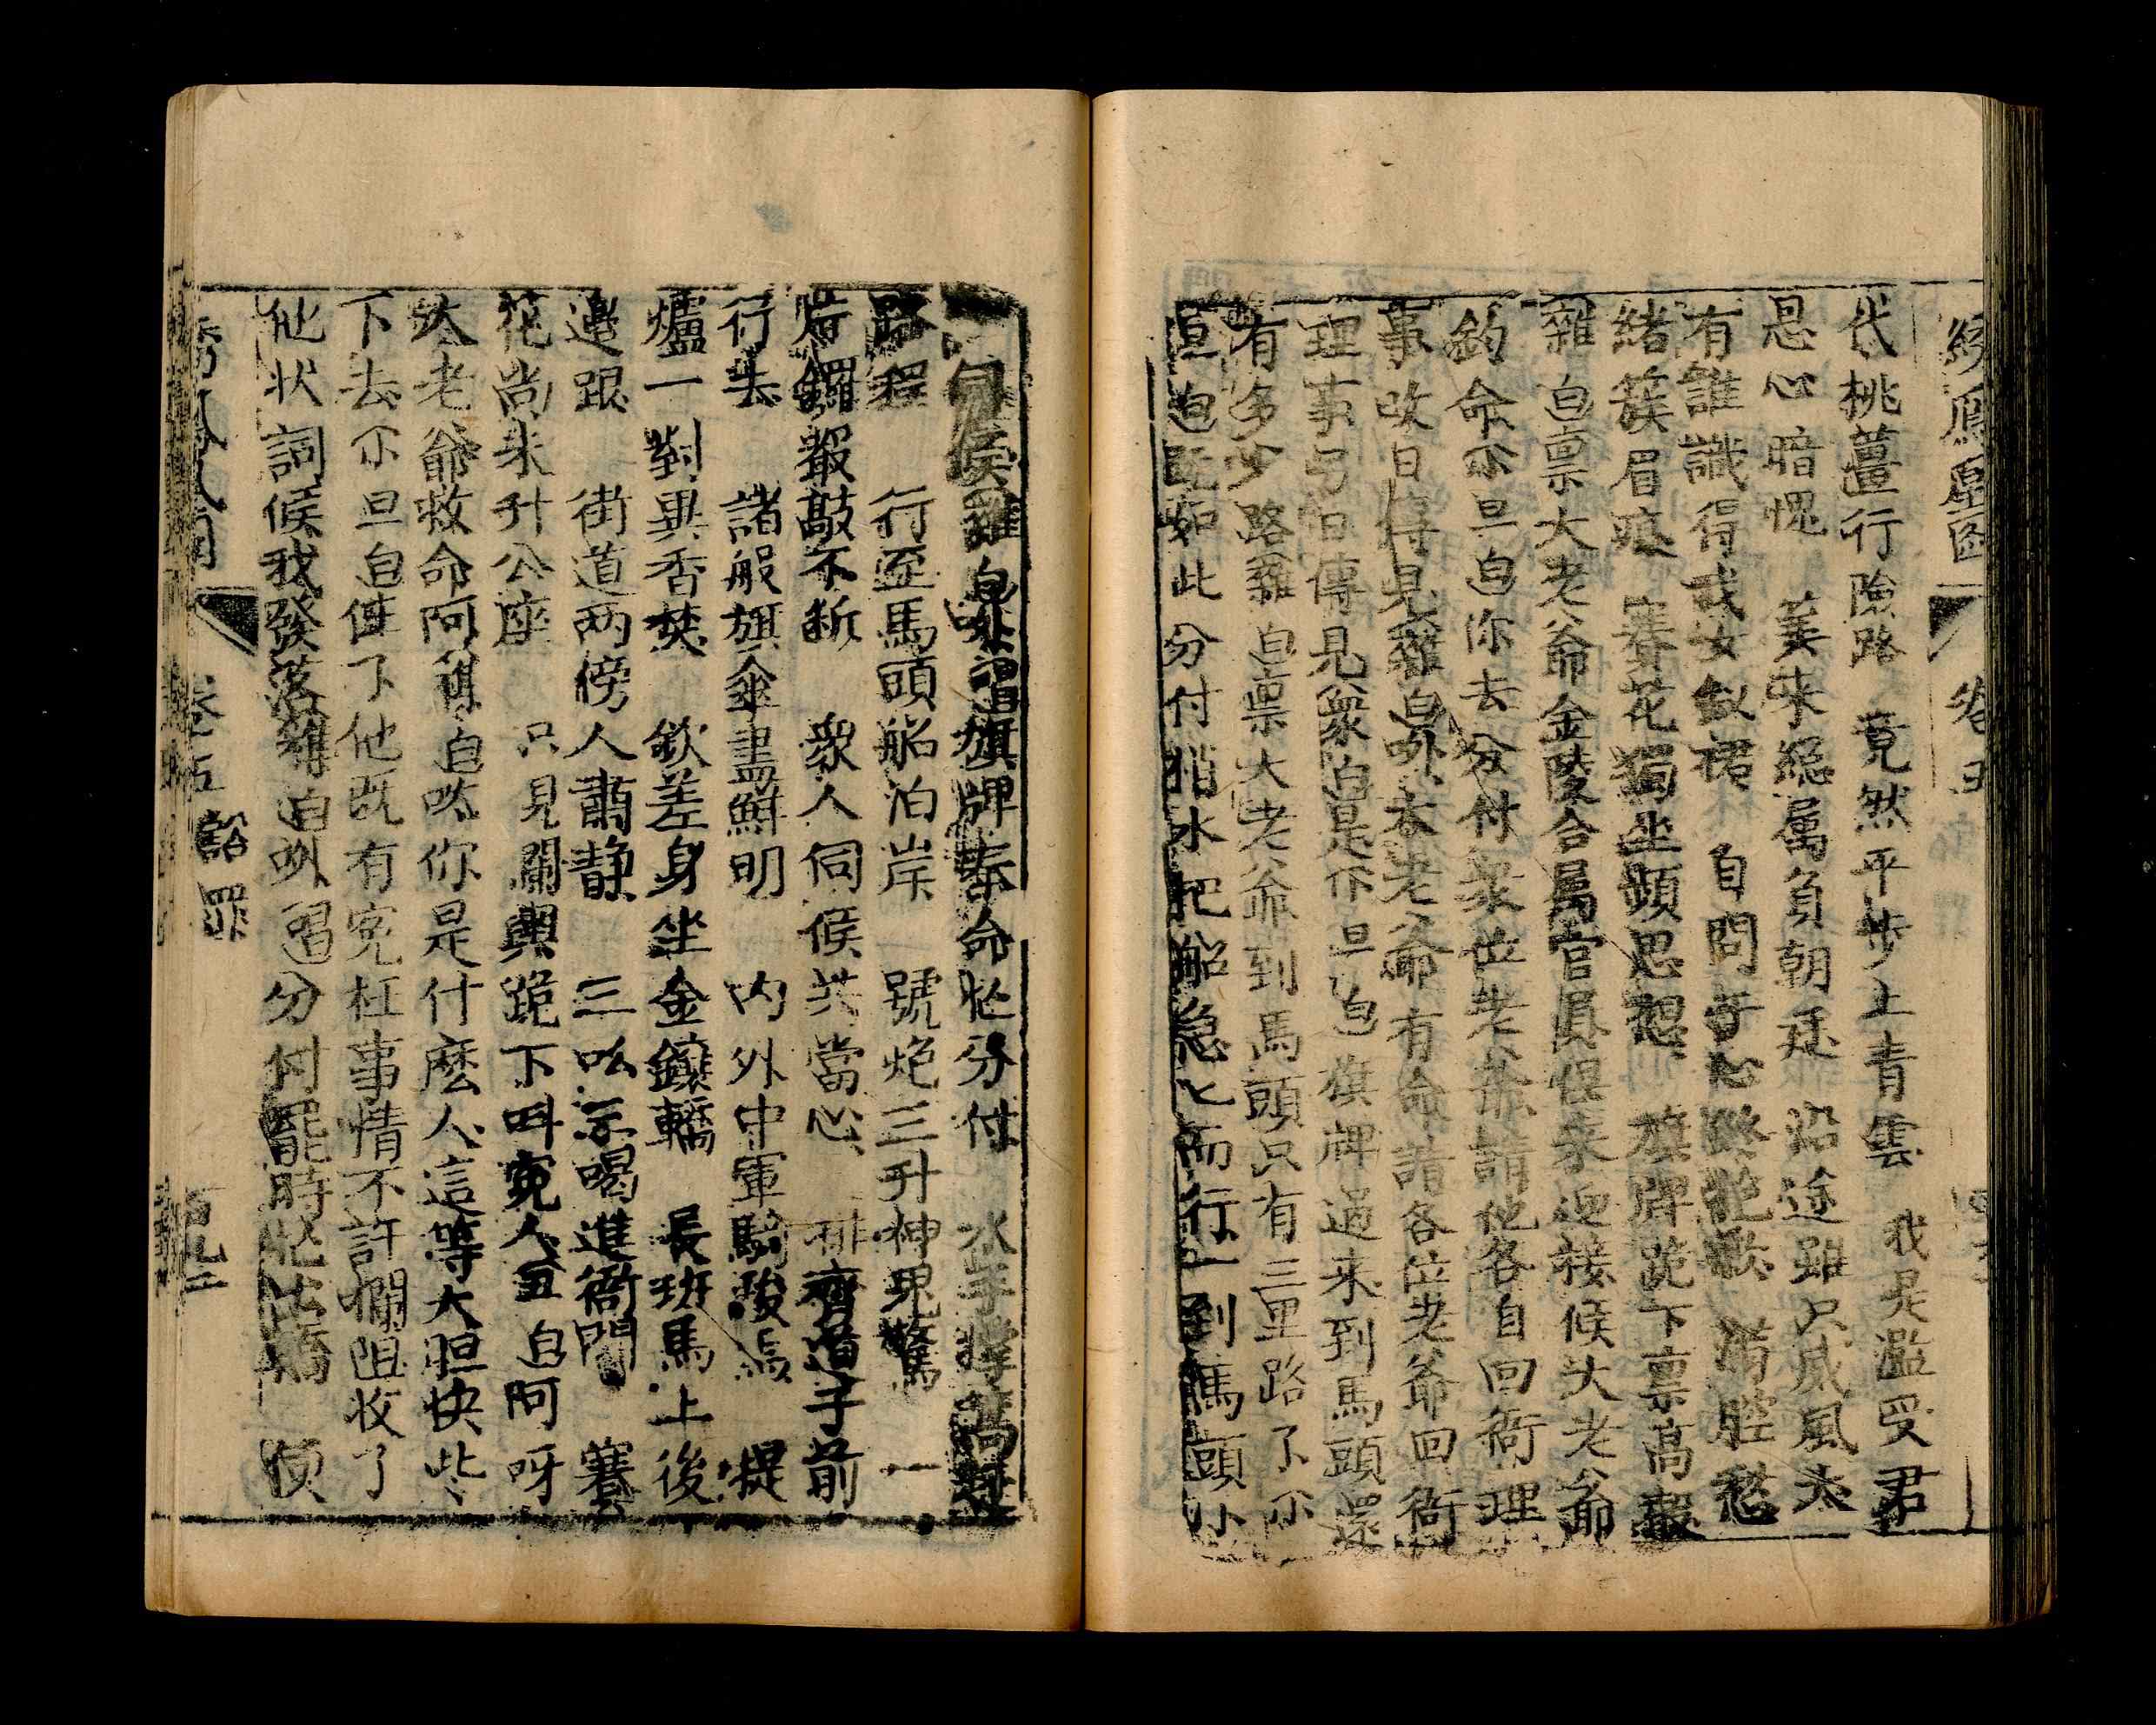 代桃薑行險路 竟然平步上青雲 我是濫受君
恩心暗愧 美來總屬負朝廷 沿途雖只威風大
有誰識得我女釵裙 自問于心 滿腔愁
緒簇眉痕 賽花獨坐頻思想 旗牌跪下禀高報
雜白禀大老爺金陵合屬官員俱來迎接候大老爺
鈞命小旦白你去分付衆位老爺請他各自回衙理
事改日傳見雜白吓衣老爺有命請各位老爺回衙
理事另日傳見衆白是小旦白旗牌過來到馬頭還
有多少路雜白禀大老爺到馬頭只有三里路了小
旦白既如此分付梢水把船急匕而行一到馬頭小
伺候雜白吓唱旗牌奉命忙分付 水手撑篙趕
路程 行至馬頭船泊岸 一號炮三升神鬼驚
鑼聲敲不斷 衆人伺候共當心 排齊道子前
行去 諸般旗傘盡鮮明 内外中軍騎駿馬 提
爐一對異香焚 欽差身坐金鑲轎 長班馬上後
邊跟 街道两傍人肅静 三吆示喝進衙門 賽
花尚未升公座 只見闌輿跪下呌寃人丑白阿呀
大老爺救命阿 白呔你是什麽人這等大胆快些
下去小旦白住了他既有寃枉事情不許攔阻收了
他状詞候我發落 白吓唱分付罷時 便
綉鳳凰圖
卷五
卷五 訟罪